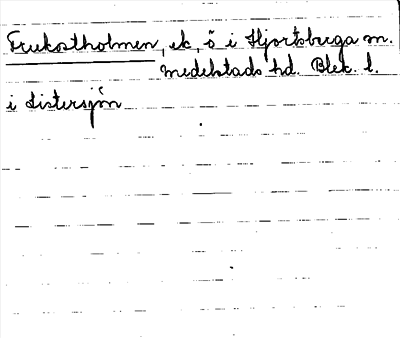 Frukostholmen, ek. ö i Hjortsberga sn.
Medelstads hd. Blek. l.
i Listersjön